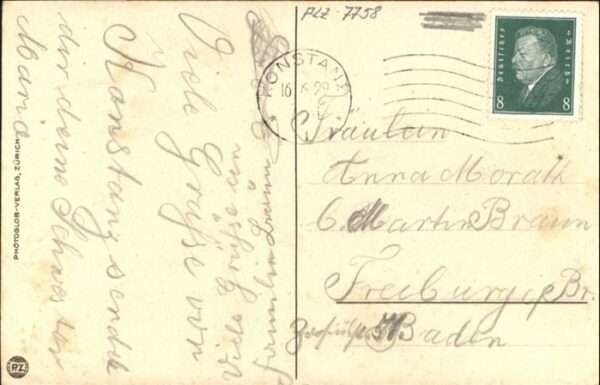 Viele Grüße von
Konstanz sendet
dir deine Schwester
Maria
Viele Grüße an
Familie Braun
PHOTOGLOB-VERLAG, ZÜRICH
PZ
PLZ - 7758
KONSTANZ
16 29
Deutsches Reich
8 8
Fräulein
Anna Morath
b. Martin Braun
Freiburg i. Br.
Baden